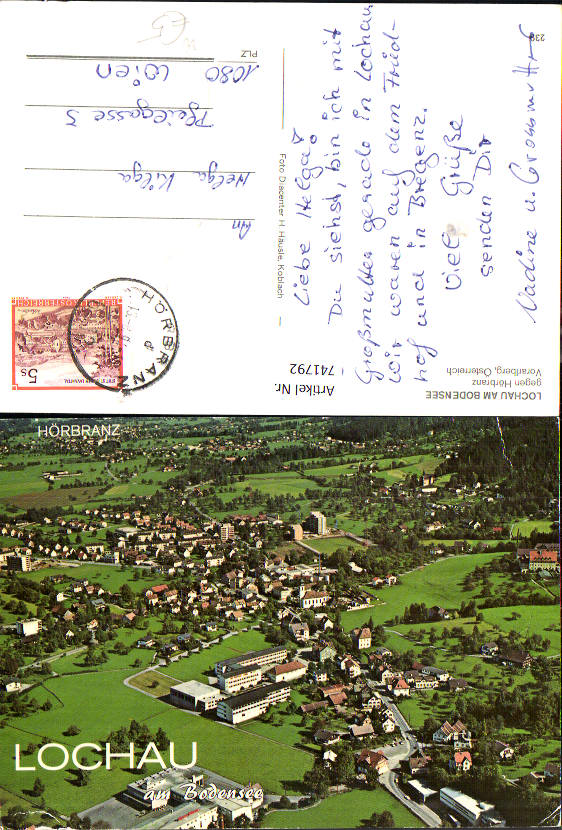 Liebe Helga!
Du siehst, bin ich mit
Großmutter gerade in Lochau
Wir waren auf dem Fried-
hof und in Bregenz.
Viele Grüße
senden Dir
Nadine u. Grossmutter
An
Helga Kilga
Pfeilgasse 3
1080 Wien
PLZ
Foto Diacenter H. Häusle, Koblach
LOCHAU AM BODENSEE
gegen Hörbranz
Vorarlberg, Österreich
Artikel Nr.
741792
HÖRBRANZ
REPUBLIK ÖSTERREICH
5s
HÖRBRANZ
LOCHAU
am Bodensee